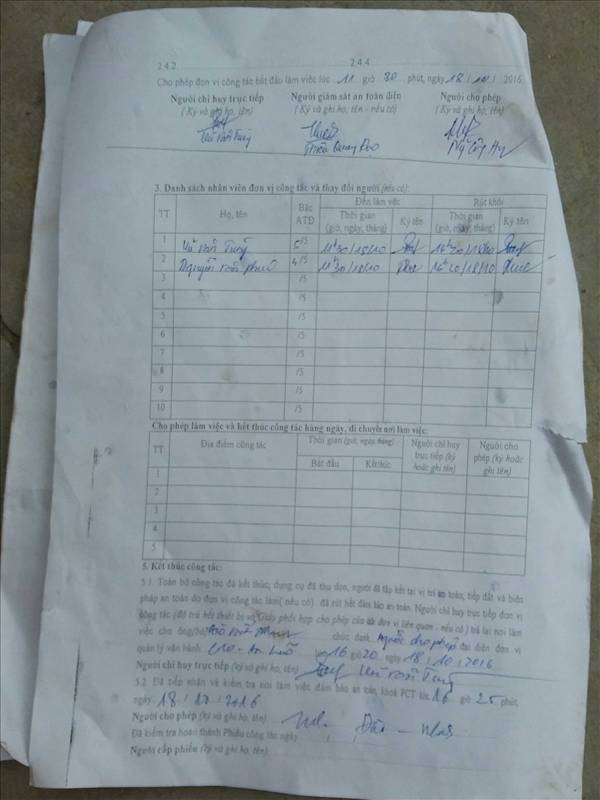 2.4.2 2.4.4
Cho phép đơn vị công tác bắt đầu làm việc lúc 11 giờ 30 phút, ngày 18 / 10 / 2016
Người chỉ huy trực tiếp Người giám sát an toàn điện Người cho phép
( Ký và ghi họ, tên) (Ký và ghi họ, tên - nếu có) ( Ký và ghi họ, tên)
Vũ Văn Tùng
3. Danh sách nhân viên đơn vị công tác và thay đổi người (nếu có):
TT Họ, tên Bậc ATĐ Đến làm việc Rút khỏi
Thời gian (giờ, ngày, tháng) Ký tên Thời gian (giờ, ngày, tháng) Ký tên
1 Vũ Văn Tùng 5/5 11h30/18/10
2 Nguyễn Văn 4/5 11h30/18/10 16h20/18/10
3 /5
4 /5
5 /5
6 /5
7 /5
8 /5
9 /5
10 /5
Cho phép làm việc và kết thúc công tác hàng ngày, di chuyển nơi làm việc:
TT Địa điểm công tác Thời gian (giờ, ngày, tháng) Người chỉ huy trực tiếp (ký hoặc ghi tên) Người cho phép (ký hoặc ghi tên)
Bắt đầu Kết thúc
1
2
3
4
5
5. Kết thúc công tác:
5.1. Toàn bộ công tác đã kết thúc, dụng cụ đã thu dọn, người đã tập kết tại vị trí an toàn, tiếp đất và biện
pháp an toàn do đơn vị công tác làm( nếu có) đã rút hết đảm bảo an toàn. Người chỉ huy trực tiếp đơn vị
công tác (đã trả hết phối hợp cho phép của các đơn vị liên quan - nếu có ) trả lại nơi làm
việc cho ông/bà: chức danh Người cho phép đại diện đơn vị
quản lý vận hành lúc 16 giờ 20 ngày 18 / 10 / 2016
Người chỉ huy trực tiếp (ký và ghi họ, tên) Vũ Văn Tùng
5.2. Đã tiếp nhận và kiểm tra nơi làm việc đảm bảo an toàn, khoá PCT lúc 16 giờ 25 phút,
ngày 18 / 10 / 2016
Người cho phép (ký và ghi họ, tên)
Đã kiểm tra hoàn thành Phiếu công tác ngày
Người cấp phiếu (ký và ghi họ, tên)